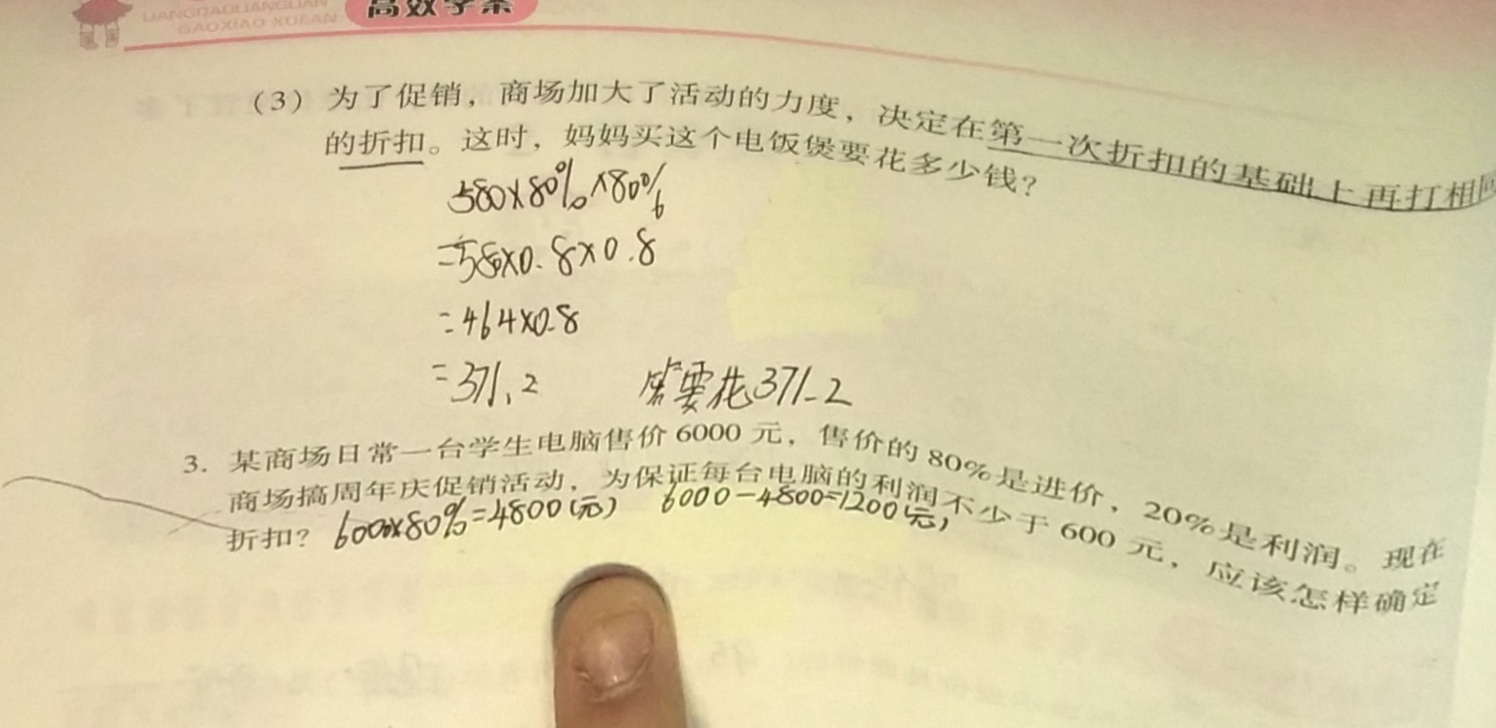 LIANGDAOLIANGLIAN
GAOXIAO XUEAN
高效学案
(3) 为了促销，商场加大了活动的力度，决定在第一次折扣的基础上再打相同
的折扣。这时，妈妈买这个电饭煲要花多少钱？
580×80%×80%
=580×0.8×0.8
=464×0.8
=371.2 需要花371.2
3. 某商场日常一台学生电脑售价 6000 元，售价的 80%是进价，20%是利润。现在
商场搞周年庆促销活动，为保证每台电脑的利润不少于 600 元，应该怎样确定
折扣？ 6000×80%=4800(元) 6000-4800=1200(元)